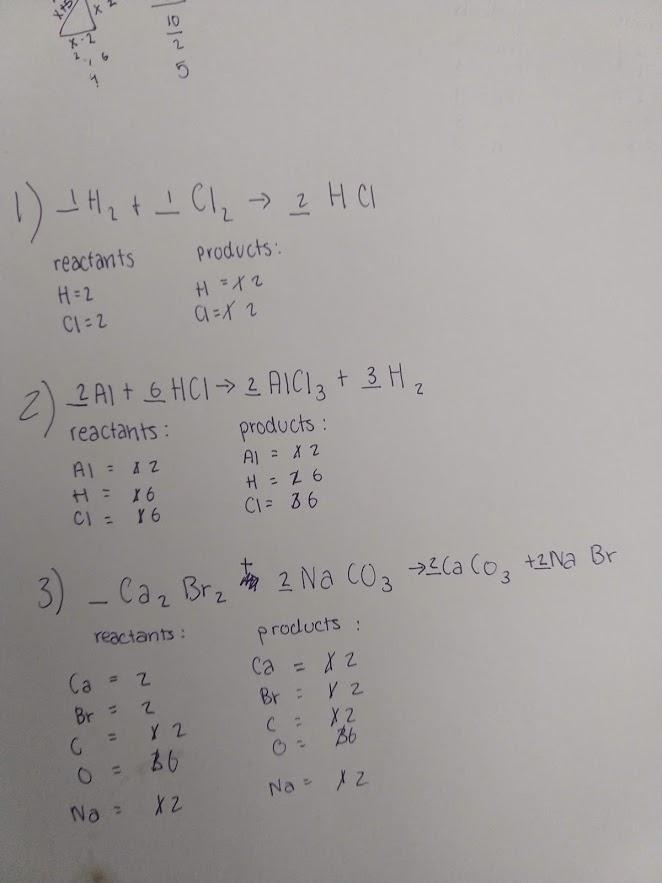 x+5 x
x-2
2, 6
4
10
2
5
1) 1 H₂ + 1 Cl₂ → 2 HCl
reactants products:
H=2 H = 1 2
Cl=2 Cl= 1 2
2) 2 Al + 6 HCl → 2 AlCl₃ + 3 H₂
reactants: products:
Al = 1 2 Al = 1 2
H = 1 6 H = 2 6
Cl = 1 6 Cl= 3 6
3) _ Ca₂ Br₂ + 2 Na CO₃ → 2 Ca CO₃ + 2 Na Br
reactants: products:
Ca = 2 Ca = 1 2
Br = 2 Br = 1 2
C = 1 2 C = 1 2
O = 3 6 O = 3 6
Na = 1 2 Na = 1 2